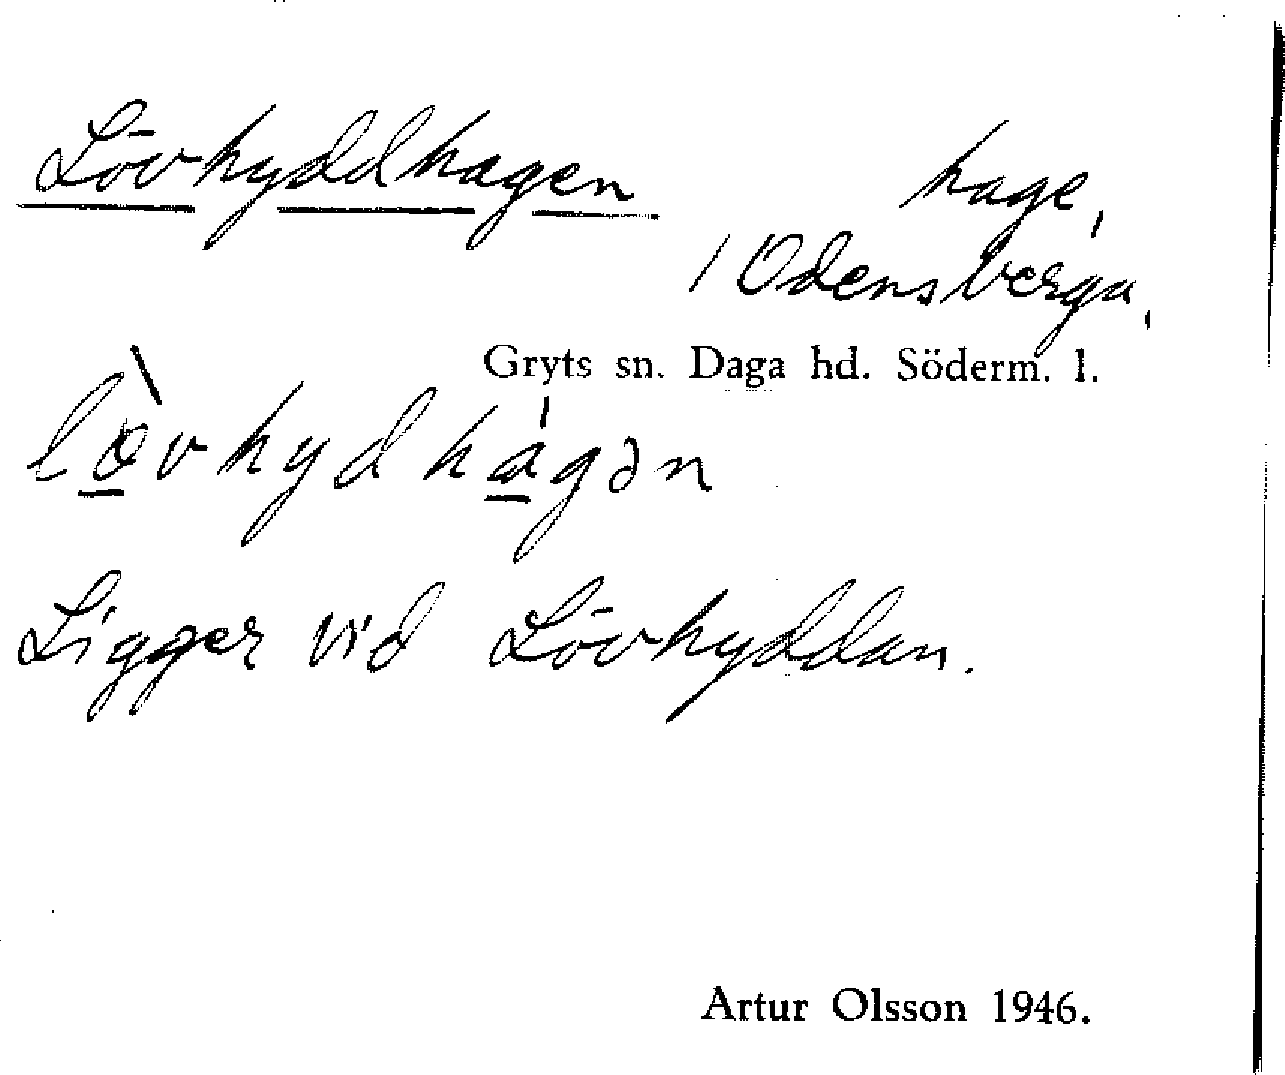 Lövhyddhagen hage,
1 Odensberga,
Gryts sn. Daga hd. Söderm. l.
lø̀vhydhágən
Ligger vid Lövhyddan.
Artur Olsson 1946.